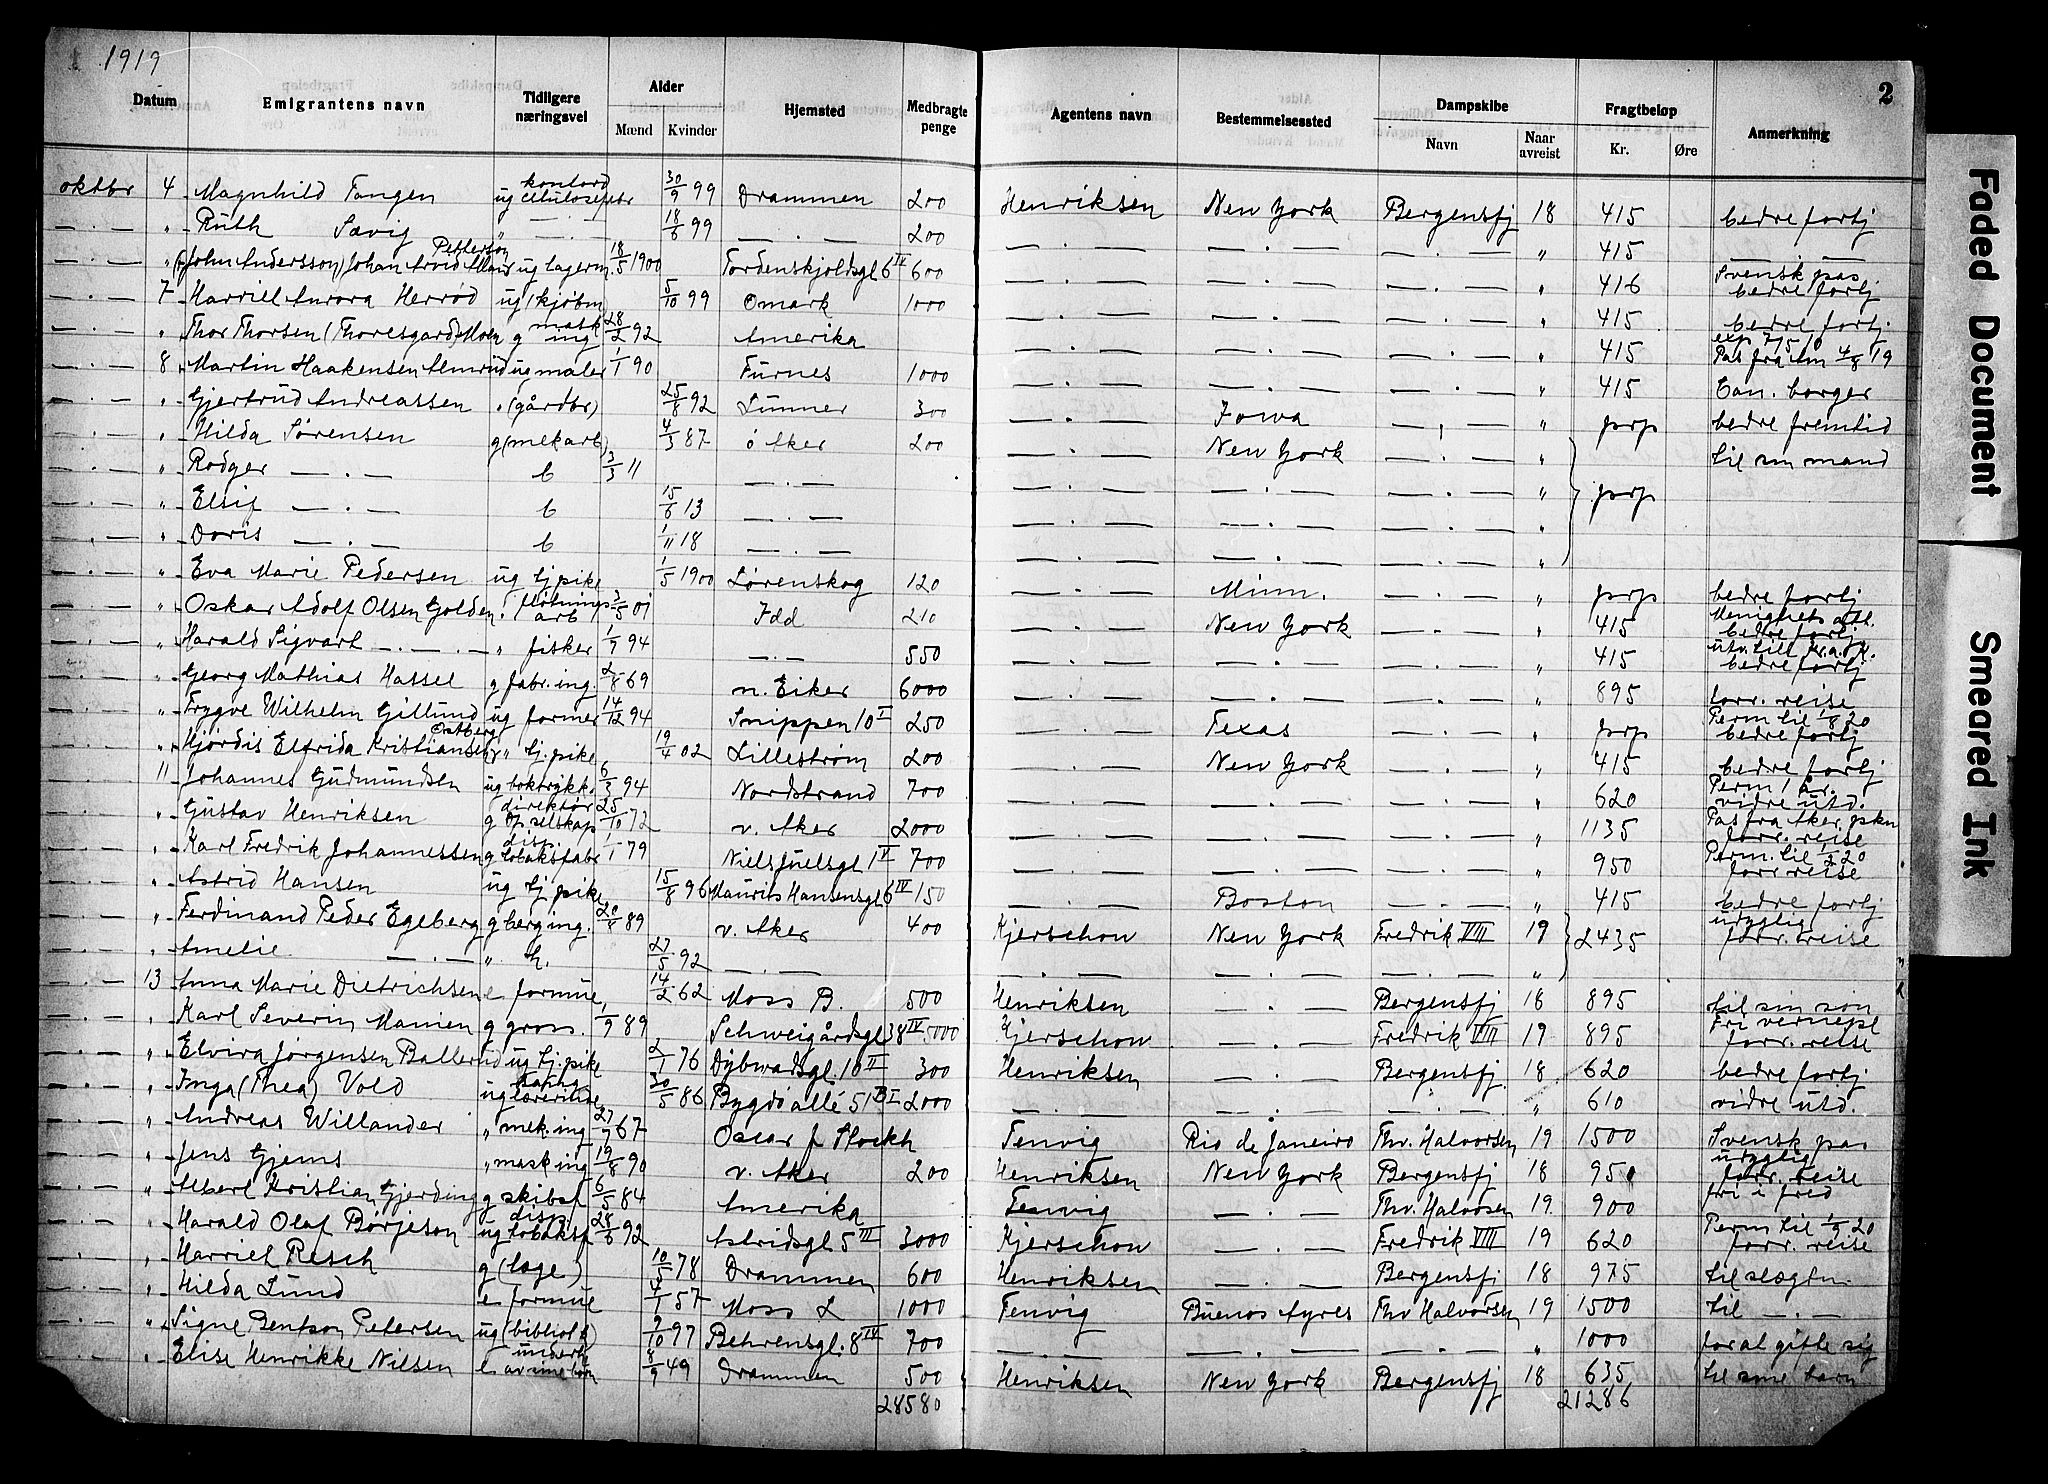 1919
2
Datum Emigrantens navn Tidligere næringsvei Alder Mænd Kvinder Hjemsted Medbragte penge Agentens navn Bestemmelsessted Dampskibe Navn Naar avreist Fragtbeløp Kr. Øre Anmerkning
oktbr 4 Magnhild Tangen ug kontord celulosefabr 30/9 99 Drammen 200 Henriksen New York Bergensfj 18 415 bedre fortj
— . — " Ruth Sævig " — . — 18/6 99 — . — . — 200 — . — — . — — . — " 415 — . —
— . — " (John Andersson) Johan Arvid Petterson ug lagerm 18/5 1900 Tordenskjoldsgt 6 IV 600 — . — — . — — . — " 416 Svensk pas bedre fortj
— . — 7 Harriet Aurora Herrød ug (kjøbm) 5/10 99 Omark 1000 — . — — . — — . — " 415 bedre fortj.
— . — " Thor Thorsen (Thoresgard) Moen g mask ing 28/2 92 Amerika — . — — . — — . — " 415 Pas fra Am 4/8 19
— . — 8 Martin Haakensen Almrud ug maler 1/1 90 Furnes 1000 — . — — . — — . — " 415 Can. borger
— . — " Gjertrud Andreassen " (gårdbr) 25/8 92 Lunner 300 — . — Iowa — . — " prp bedre fremtid
— . — " Hilda Sørensen g (mek arb) 4/3 87 ø Aker 200 — . — New York — . — " til sin mand
— . — " Rodger — . — b 3/3 11 — . — — . — — . — — . — " prp
— . — " Elsif — . — b 15/6 13 — . — — . — — . — — . — "
— . — " Doris — . — b 1/11 18 — . — — . — — . — — . — "
— . — " Eva Marie Pedersen ug tj pike 1/5 1900 Lørenskog 120 — . — Minn. — . — " prp bedre fortj
— . — " Oskar Adolf Olsen Golden " fløtnings arb 3/5 01 Idd 210 — . — New York — . — " 415 Menighets att. bedre fortj
— . — " Harald Sigvart — . — . — " fisker 1/9 94 — . — 550 — . — — . — — . — " 415 bedre fortj
— . — " Georg Mathias Hassel g fabr. ing. 2/8 69 n. Eiker 6000 — . — — . — — . — " 895 forr. reise
— . — " Trygve Wilhelm Gillund ug former 14/12 94 Snippen 10 I 250 — . — Texas — . — " prp Perm til 1/8 20 bedre fortj
— . — " Hjørdis Elfrida Kristiansen Østberg " tj. pike 19/4 02 Lillestrøm 200 — . — New York — . — " 415 bedre fortj
— . — 11 Johannes Gudmundsen ug boktrykk. 6/3 94 Nordstrand 700 — . — — . — — . — " 620 Perm 1 år. vidre utd.
— . — " Gustav Henriksen g direktør 25/10 72 v. Aker 2000 — . — — . — — . — " 1135 Pas fra Aker pskn forr. reise
— . — " Karl Fredrik Johannessen g disp. tobaksfabr 1/1 79 Niels Juelsgt 1 V 700 — . — — . — — . — " 950 Perm. til 1/2 20 forr reise
— . — " Astrid Hansen ug tj. pike 15/8 96 Maurits Hansensgt 6 IV 150 — . — Boston — . — " 415 bedre fortj
— . — " Ferdinand Peder Egeberg g berg ing. 20/8 89 v. Aker 400 Kjerschow New York Fredrik VIII 19 2435 utyglig forr. reise
— . — " Amelie — . — " h. 27/5 92 — . — — . — — . — — . — "
— . — 13 Anna Marie Dietrichsen e formue 14/2 62 Moss B. 500 Henriksen — . — Bergensfj 18 895 til sin søn
— . — " Karl Severin Mamen g gross. 1/9 89 Schweigårdsgt 38 IV 5000 Kjerschow — . — Fredrik VIII 19 895 Fri vernepl forr. reise
— . — " Elvira Jørgensen Ballerud ug tj. pike 2/1 76 Dybwadsgt. 10 II 300 Henriksen — . — Bergensfj. 18 620 bedre fortj
— . — " Inga (Thea) Vold ug lærerinde 30/5 86 Bygdø allé 51 B I 2000 — . — — . — — . — " 610 vidre utd.
— . — " Andreas Willander " mek. ing 27/7 67 Oscar f Stockh Fenvig Rio de Janeiro Thv. Halvorsen 19 1500 Svensk pas
— . — " Jens Gjems " mask ing 19/8 90 v. Aker 200 Henriksen New York Bergensfj 18 950 utyglig forr. reise
— . — " Albert Kristian Gjerding g skibsf 6/5 84 Amerika Fenvig — . — Thv. Halvorsen 19 900 fri i fred
— . — " Harald Olaf Børjeson ug disp. tobaksf 28/6 92 Astridsgt 5 III 3000 Kjerschow — . — Fredrik VIII 19 620 Perm til 1/3 20 forr. reise
— . — " Harriet Resch g (læge) 10/5 78 Drammen 600 Henriksen — . — Bergensfj 18 975 til slægtn.
— . — " Hilda Lund e formue 4/1 57 Moss L 1000 Fenvig Buenos Ayres Thv Halvorsen 19 1500 til — . —
— . — " Signe Bentson Petersen ug (bibliot) 9/10 97 Behrensgt. 8 IV 700 — . — — . — — . — " 1000 for at gifte sig
— . — " Elise Henrikke Nilsen e underh av sine børn 8/9 49 Drammen 500 Henriksen New York Bergensfj 18 635 til sine barn
28580 21286
Faded Document
Smeared Ink